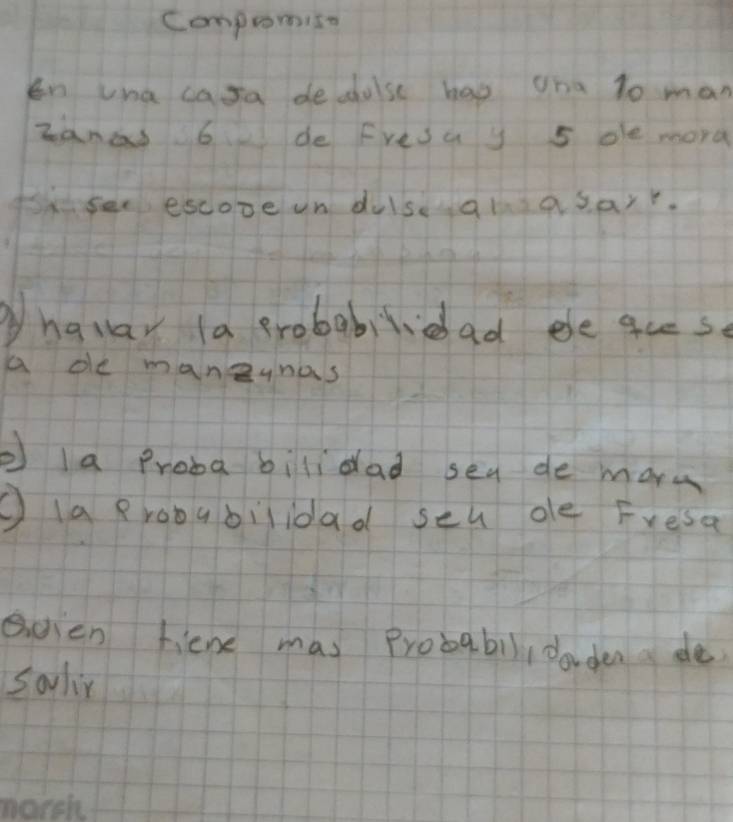 Compromiso
en una casa de dulse hap una 10 man
zanas 6 de Fresa y 5 de mora
si see escoje un dulse al asarr.
a) hallar la probabilidad de que se
a de manzanas
b) la Probabilidad sea de mora
c) la probabilidad sea de Fresa
Quien tiene mas Probabilidades de
salir